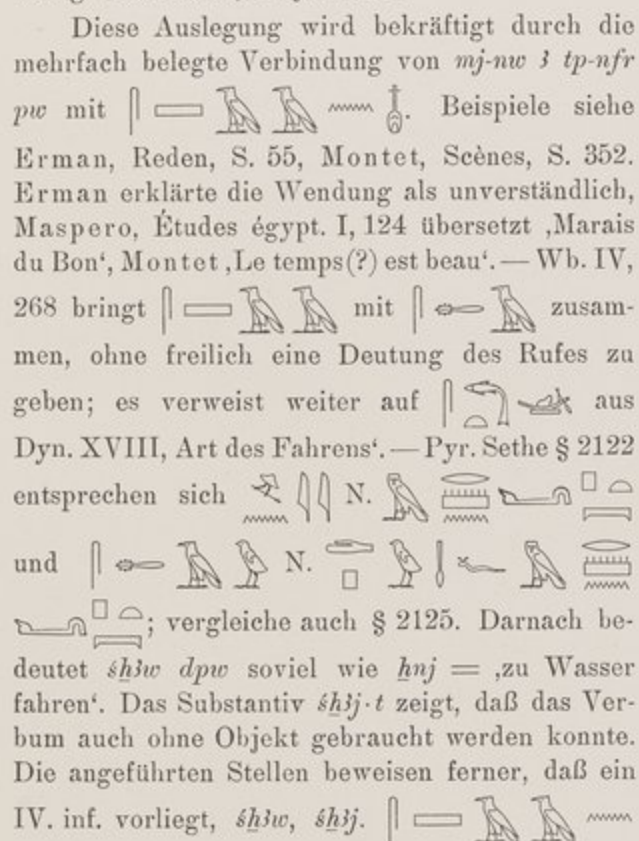 Diese Auslegung wird bekräftigt durch die
mehrfach belegte Verbindung von mj-nw ꜣ tp-nfr
pw mit 𓋴𓈙𓄿𓄿𓈖𓄤. Beispiele siehe
Erman, Reden, S. 55, Montet, Scènes, S. 352.
Erman erklärte die Wendung als unverständlich,
Maspero, Études égypt. I, 124 übersetzt ‚Marais
du Bon‘, Montet ‚Le temps(?) est beau‘. — Wb. IV,
268 bringt 𓋴𓈙𓄿𓄿 mit 𓋴𓄡𓄿 zusam-
men, ohne freilich eine Deutung des Rufes zu
geben; es verweist weiter auf 𓋴 aus
Dyn. XVIII, Art des Fahrens‘. — Pyr. Sethe § 2122
entsprechen sich 𓂙𓈖𓇋𓇋 N. 𓅓𓂋𓏠𓈖 𓊪𓏏𓇯
und 𓋴𓄡𓄿𓅱 N. 𓂧𓊪𓅱 𓅓𓂋𓏠𓈖
𓊪𓏏𓇯; vergleiche auch § 2125. Darnach be-
deutet śẖꜣw dpw soviel wie ẖnj = ‚zu Wasser
fahren‘. Das Substantiv śẖꜣj·t zeigt, daß das Ver-
bum auch ohne Objekt gebraucht werden konnte.
Die angeführten Stellen beweisen ferner, daß ein
IV. inf. vorliegt, śẖꜣw, śẖꜣj. 𓋴𓈙𓄿𓄿𓈖